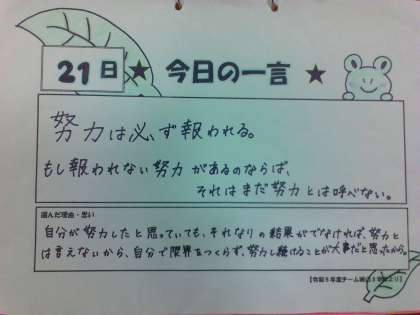 21日 ★ 今日の一言 ★
努力は必ず報われる。
もし報われない努力があるのならば、
それはまだ努力とは呼べない。
選んだ理由・思い
自分が努力したと思っていても、それなりの結果がでなければ、努力と
は言えないから、自分で限界をつくらず、努力し続けることが大事だと思ったから。
【令和5年度チーム
より】